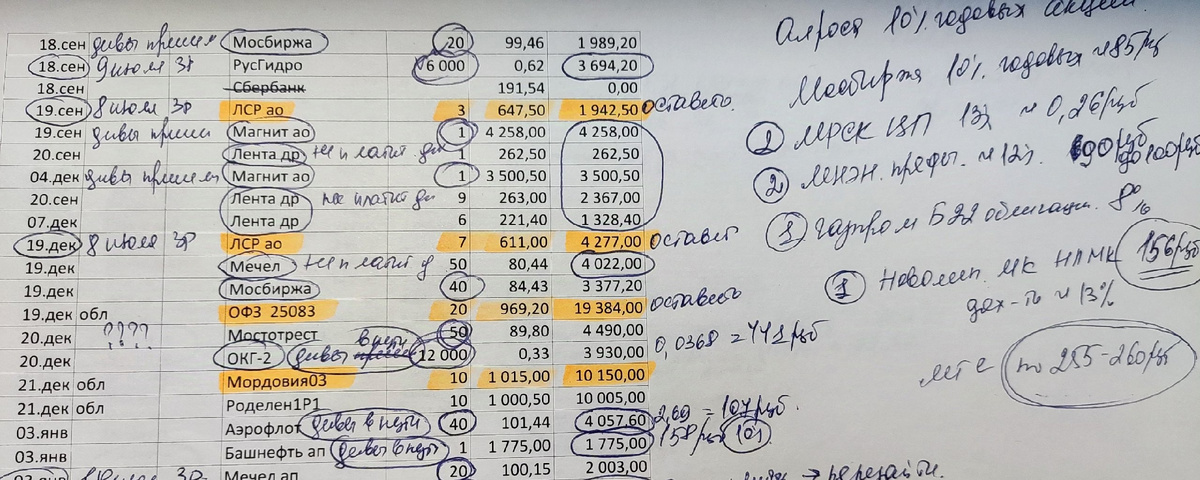 18.сен дивы пришли Мосбиржа 20 99,46 1 989,20
18.сен 9 июля 3г РусГидро 6 000 0,62 3 694,20
18.сен Сбербанк 191,54 0,00
19.сен 8 июля 3г ЛСР ао 3 647,50 1 942,50 оставить
19.сен дивы пришли Магнит ао 1 4 258,00 4 258,00
20.сен Лента др не платит ди 1 262,50 262,50
04.дек дивы пришли Магнит ао 1 3 500,50 3 500,50
20.сен Лента др не платит ди 9 263,00 2 367,00
07.дек Лента др 6 221,40 1 328,40
19.дек 8 июля 3г ЛСР ао 7 611,00 4 277,00 оставит
19.дек Мечел не платит д 50 80,44 4 022,00
19.дек Мосбиржа 40 84,43 3 377,20
19.дек обл ОФЗ 25083 20 969,20 19 384,00 оставить
20.дек ???? Мостотрест 50 89,80 4 490,00
20.дек ОКГ-2 дивы в пути 12 000 0,33 3 930,00 0,0368 = 441 руб
21.дек обл Мордовия03 10 1 015,00 10 150,00
21.дек обл Роделен1Р1 10 1 000,50 10 005.00
03.янв Аэрофлот дивы в пути 40 101,44 4 057,60 2,69 = 107 руб.
03.янв Башнефть ап дивы в пути 1 1 775,00 1 775,00 158 руб
03.янв Мечел ап 20 100,15 2 003,00
Алроса 10% годовых акции.
Мосбиржа 10% годовых ~85 руб
1 МРСК ЦП 13% ~ 0,26 руб
2 преды. ~ 12% 90 руб до 100 руб
1 Газпром Б22 облигации. 8%
1 Новолип. МК НЛМК 156 руб
дох-ть ~ 13%
МТС по 255-260 руб
→ перезайти.